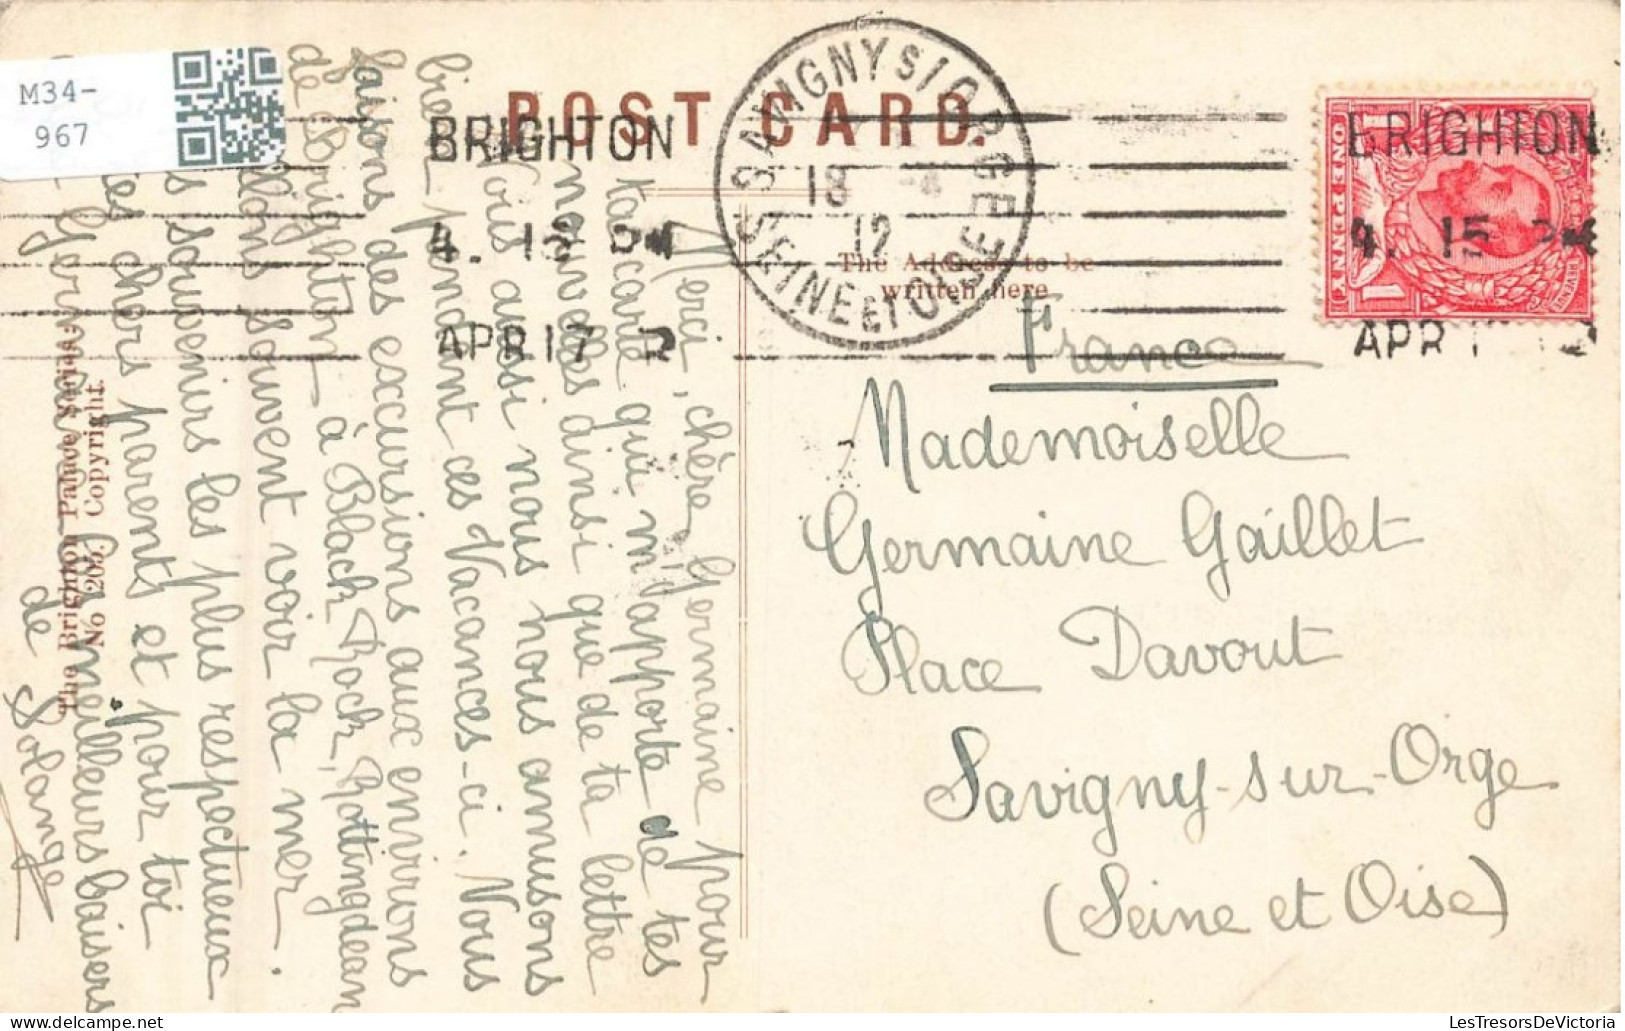 M34-
967
POST CARD.
BRIGHTON
4. 15 PM
APR 17 12
SAVIGNY S/ORGE
18 -4
12
SEINE ET OISE
BRIGHTON
4. 15 PM
APR 17 12
ONE PENNY
The Address to be
written here
France
Mademoiselle
Germaine Gaillet
Place Davout
Savigny-sur-Orge
(Seine et Oise)
Merci, chère Germaine pour
ta carte qui m'apporte de tes
nouvelles ainsi que de ta lettre
Nous aussi nous nous amusons
bien pendant ces Vacances-ci. Nous
faisons des excursions aux environs
de Brighton à Black Rock, Rottingdean
allons souvent voir la mer.
souvenirs les plus respectueux
chers parents et pour toi
meilleurs baisers
de Solange
The Brighton Palace Series,
No 205. Copyright.
LesTresorsDeVictoria.com